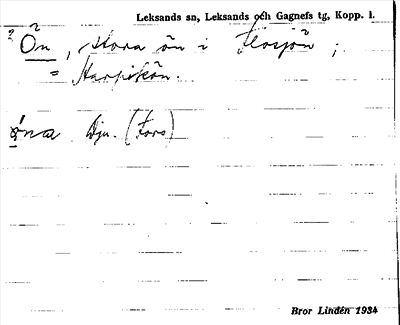 Leksands sn, Leksands och Gagnefs tg, Kopp. l.
Ön, stora ön i Flosjön;
= Harpikön.
öna Dju. (Fors)
Bror Lindén 1934